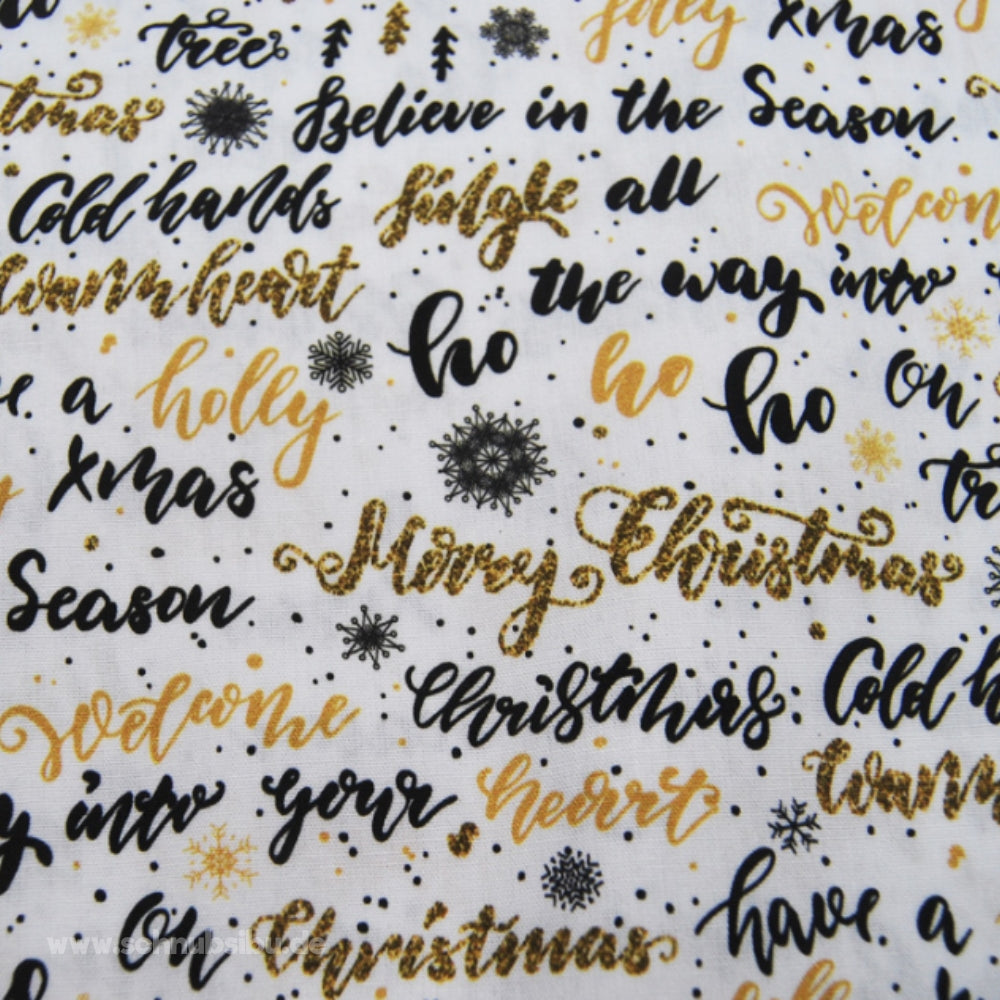 ho tree holly Xmas
tmas Believe in the Season
Cold hands Jingle all Welcom
Warm heart the way into
ho ho ho On
a holly
Xmas tr
Season Merry Christmas
Welcome Christmas Cold h
y into your heart Warm
On Christmas have a
www.schnubsibu.de